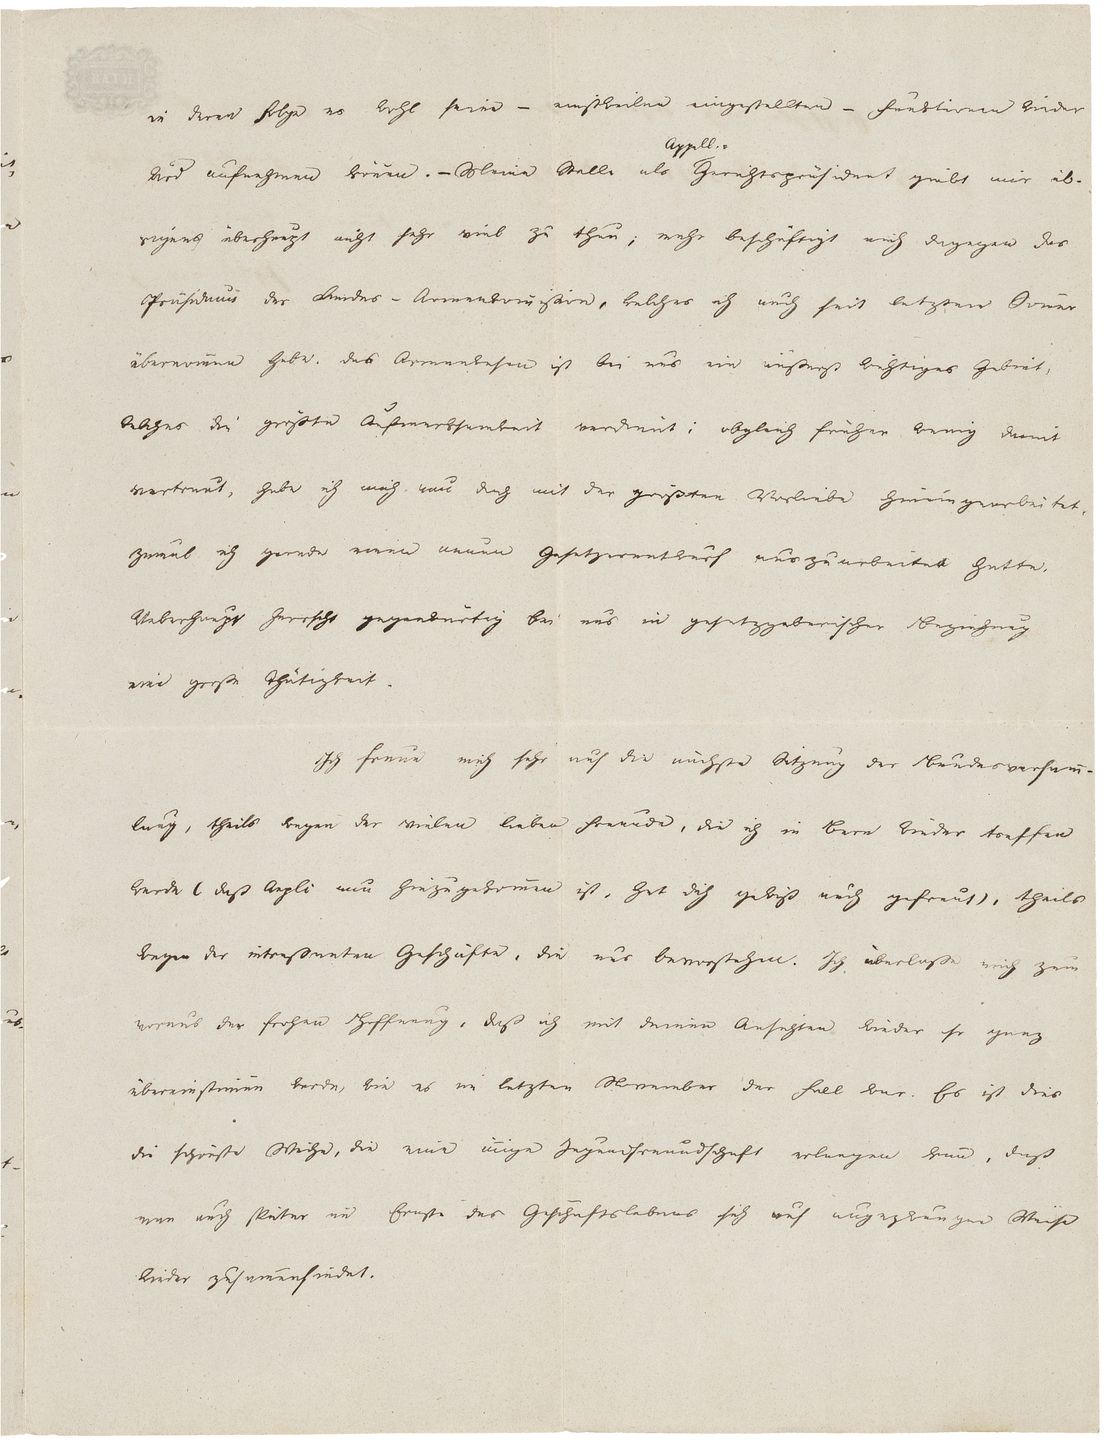 in deren Folge er wohl seine – einstweilen eingestellten – Funktionen wieder
wird aufnehmen können. – Meine Stelle als Appell.-Gerichtspräsident giebt mir üb-
rigens überhaupt nicht sehr viel zu thun; mehr beschäftigt mich dagegen das
Präsidium der Landes-Armenkommission, welches ich auch seit letztem Sommer
übernommen habe. Das Armenwesen ist bei uns ein äußerst wichtiges Gebiet,
welches die größte Aufmerksamkeit verdient; obgleich früher wenig damit
vertraut, habe ich mich nun doch mit der größten Vorliebe hineingearbeitet,
zumal ich gerade einen neuen Gesetzesentwurf auszuarbeiten hatte.
Ueberhaupt herrscht gegenwärtig bei uns in gesetzgeberischer Beziehung
eine große Thätigkeit.
Ich freue mich sehr auf die nächste Sitzung der Bundesversamm-
lung, theils wegen der vielen lieben Freunde, die ich in Bern wieder treffen
werde (daß Aepli nun hinzugekommen ist, hat dich gewiß auch gefreut), theils
wegen der intreßanten Geschäfte, die uns bevorstehen. Ich überlaße mich zum
voraus der frohen Hoffnung, daß ich mit deinen Ansichten wieder so ganz
übereinstimmen werde, wie es im letzten November der Fall war. Es ist dies
die schönste Weihe, die eine innige Jugendfreundschaft erlangen kann, daß
man auch später im Ernste des Geschäftslebens sich auf ungezwungene Weise
wieder zusammenfindet.